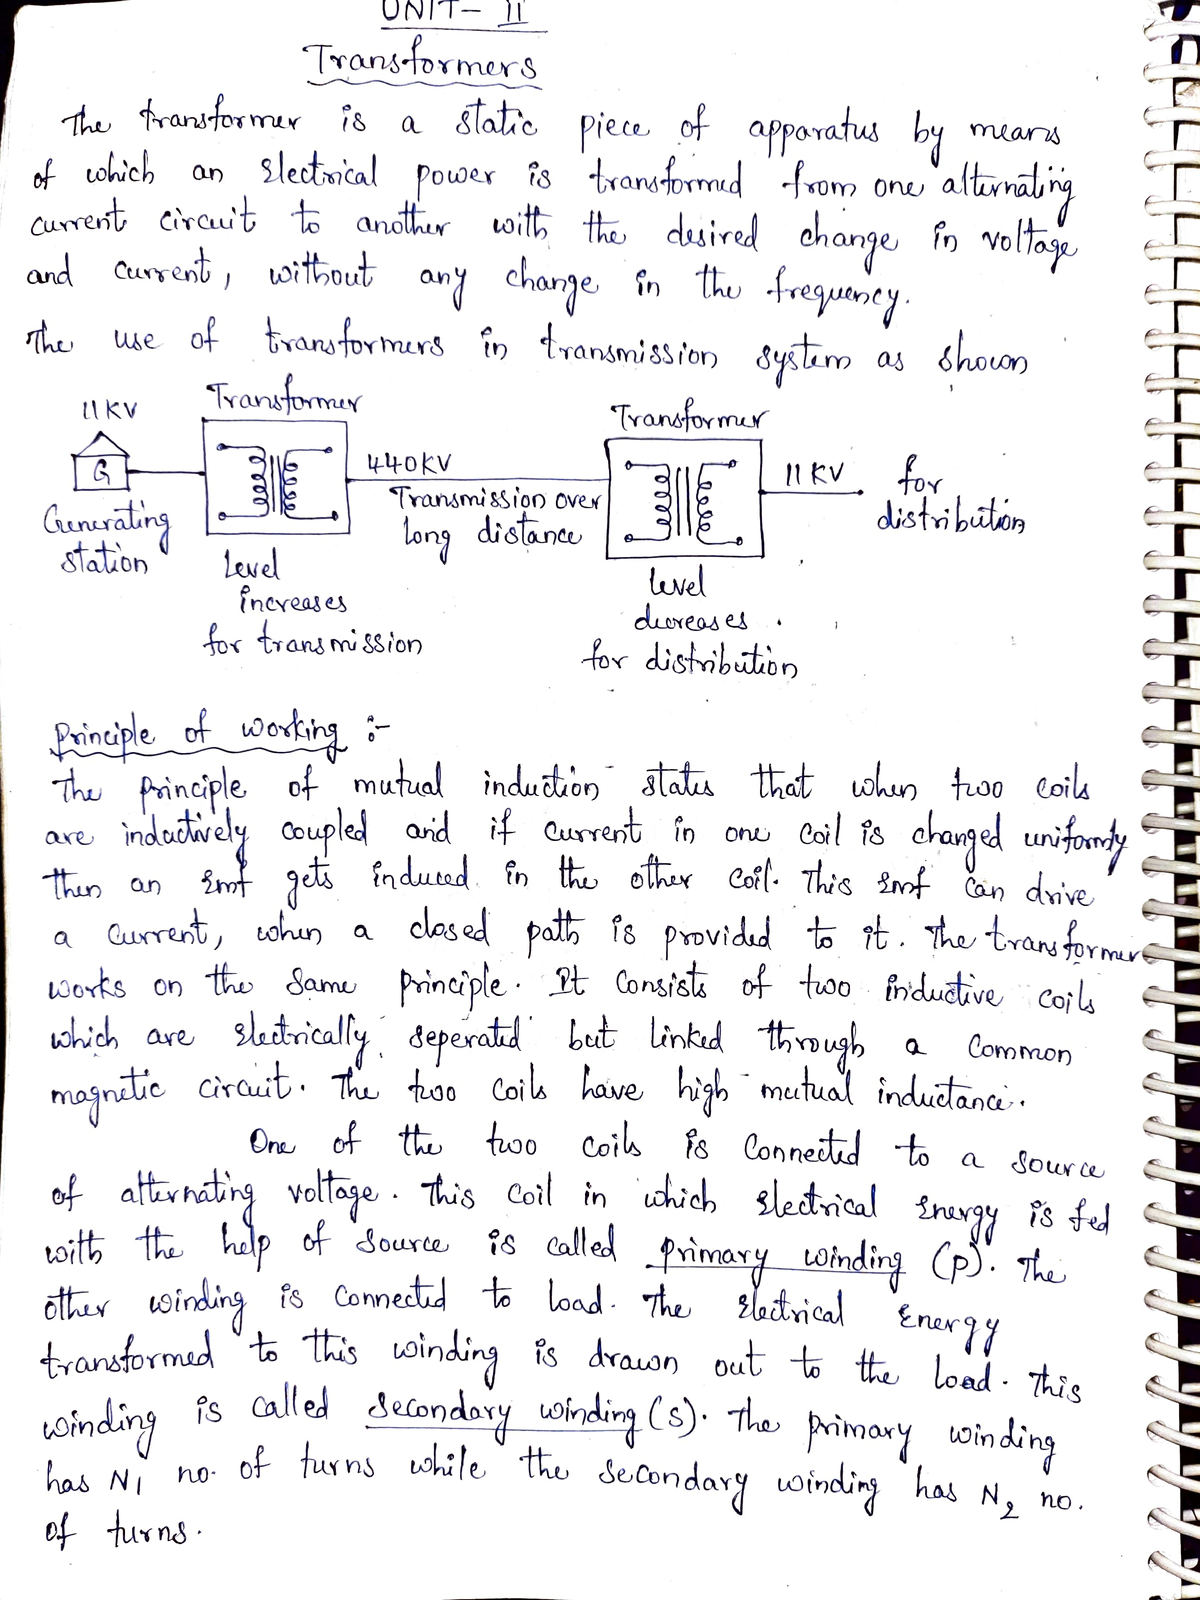 UNIT- II
Transformers
The transformer is a static piece of apparatus by means
of which an Electrical power is transformed from one alternating
current circuit to another with the desired change in voltage
and current, without any change in the frequency.
The use of transformers in transmission system as shown
11KV
Transformer
Transformer
G
440KV
11 KV
for
distribution
Transmission over
long distance
Generating
station
Level
increases
for transmission
level
decreases
for distribution
principle of working :-
The principle of mutual induction states that when two coils
are inductively coupled and if current in one coil is changed uniformly
then an Emf gets induced in the other coil. This Emf can drive
a current, when a closed path is provided to it. The transformer
works on the same principle. It consists of two inductive coils
which are Electrically seperated but linked through a common
magnetic circuit. The two coils have high mutual inductance.
One of the two coils is connected to a source
of alternating voltage. This coil in which Electrical Energy is fed
with the help of source is called primary winding (p). The
other winding is connected to load. The Electrical Energy
transformed to this winding is drawn out to the load. This
winding is called secondary winding (s). The primary winding
has N1 no. of turns while the secondary winding has N2 no.
of turns.